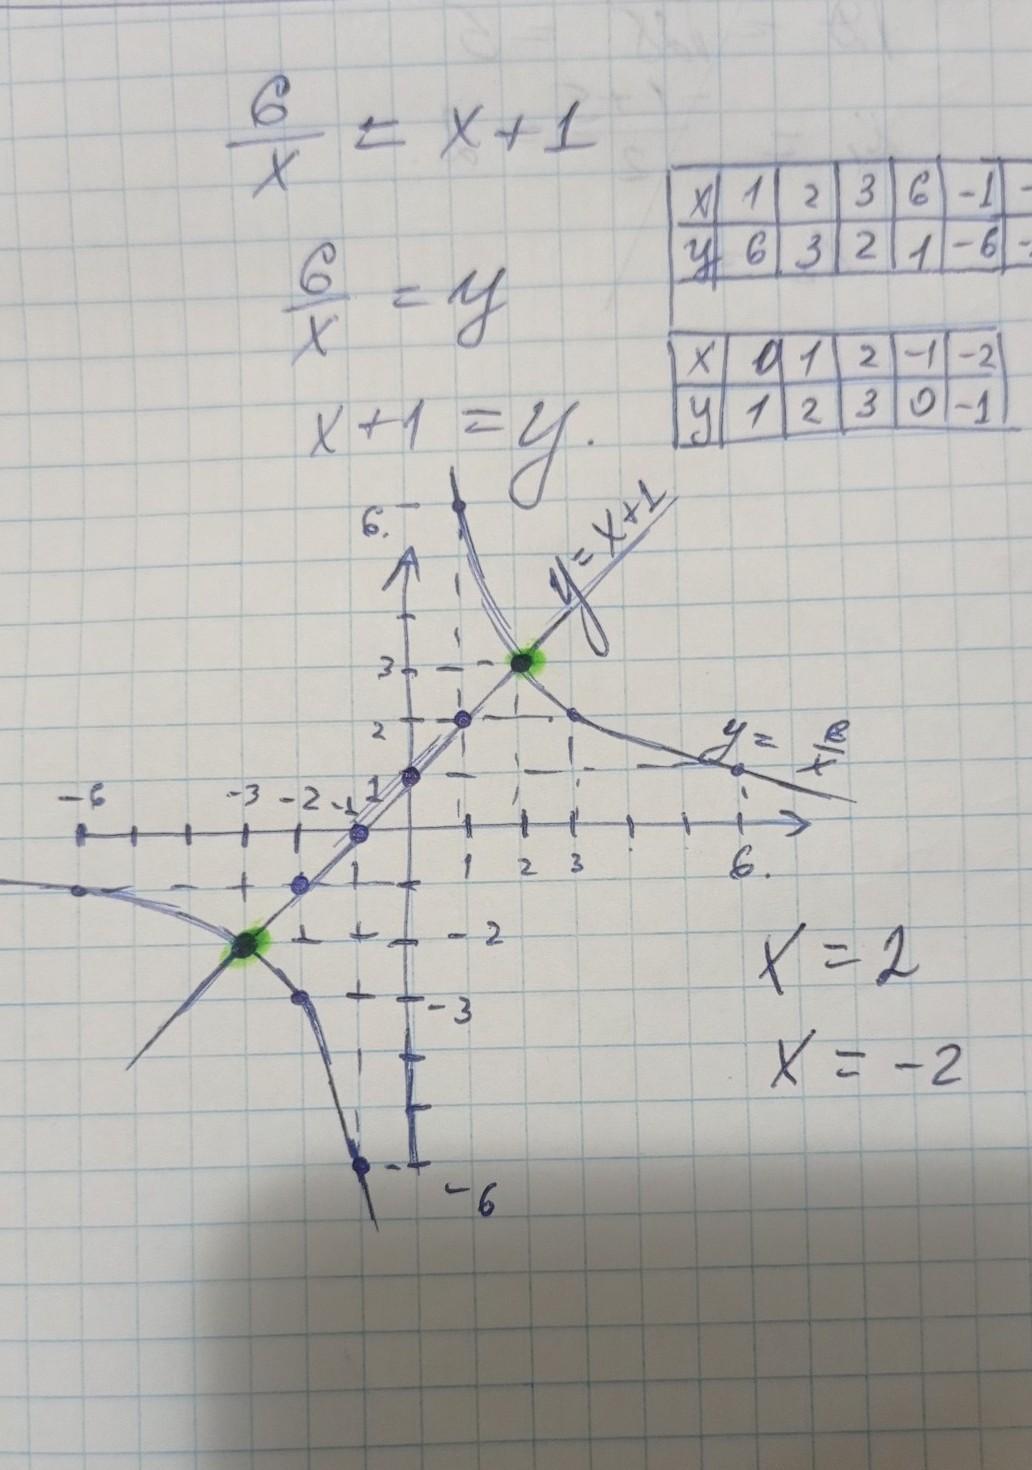 6/x = x+1
x 1 2 3 6 -1 -
y 6 3 2 1 -6 -
6/x = y
x 0 1 2 -1 -2
y 1 2 3 0 -1
x+1 = y.
6.
y=x+1
3
2
y= 6/x
-6 -3 -2 -1 1
1 2 3 6.
-2
x = 2
-3
x = -2
-6